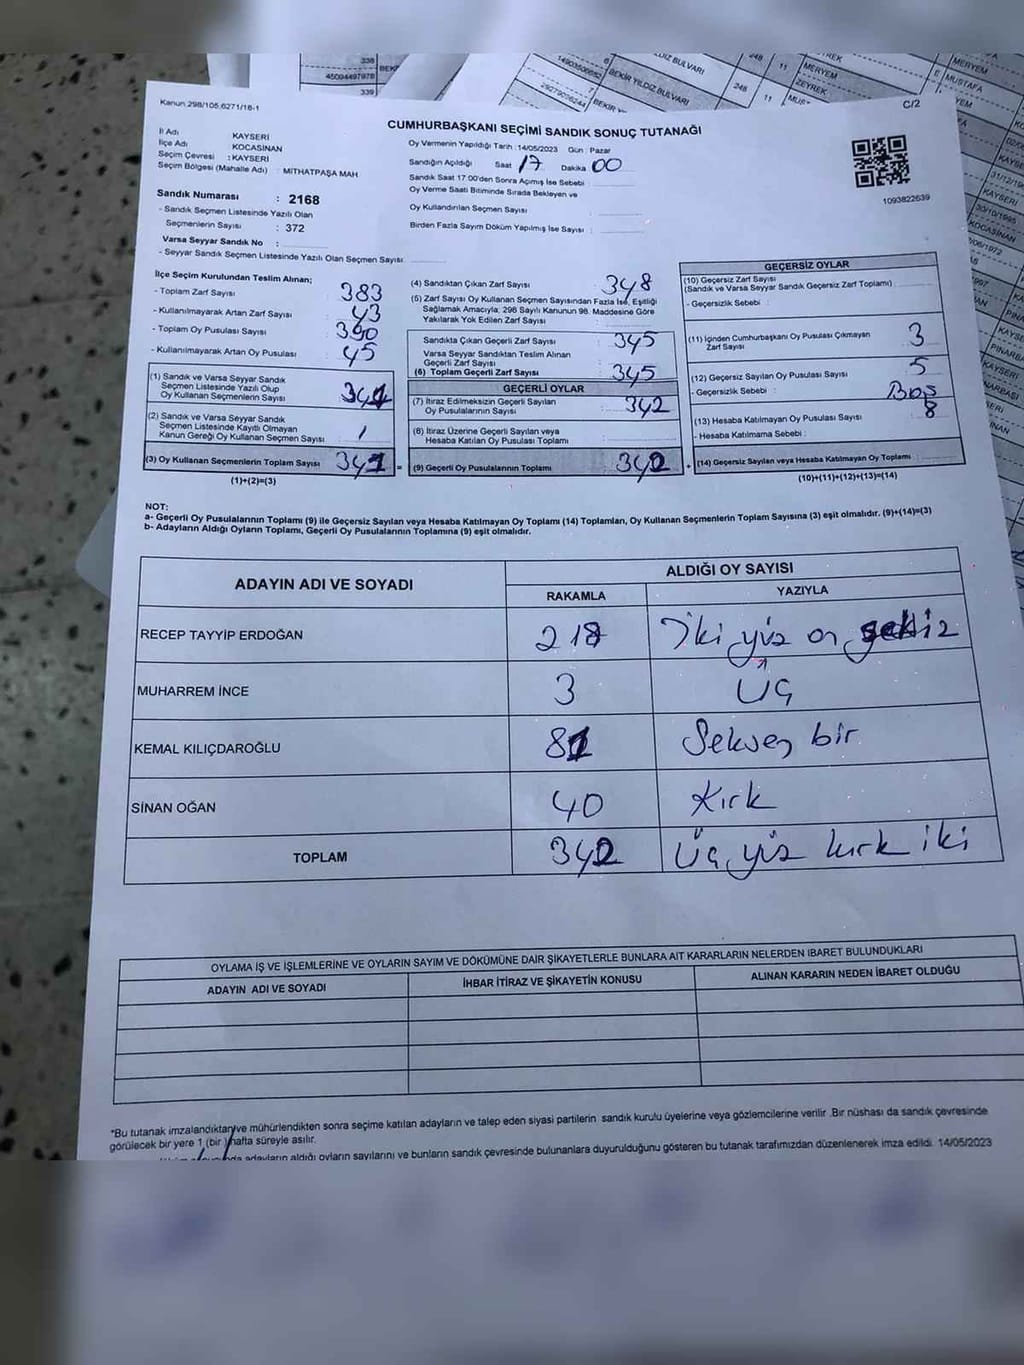 Kanun 298/105,6271/16-1
C/2
CUMHURBAŞKANI SEÇİMİ SANDIK SONUÇ TUTANAĞI
İl Adı KAYSERİ
İlçe Adı KOCASİNAN
Seçim Çevresi : KAYSERİ
Seçim Bölgesi (Mahalle Adı) : MİTHATPAŞA MAH
Oy Vermenin Yapıldığı Tarih :14/05/2023 Gün : Pazar
Sandığın Açıldığı Saat 17 Dakika 00
Sandık Saat 17.00'den Sonra Açımış İse Sebebi
Oy Verme Saati Bitiminde Sırada Bekleyen ve
Oy Kullandırılan Seçmen Sayısı
Birden Fazla Sayım Döküm Yapılmış İse Sayısı :
1093822639
Sandık Numarası : 2168
- Sandık Seçmen Listesinde Yazılı Olan
Seçmenlerin Sayısı : 372
Varsa Seyyar Sandık No :
- Seyyar Sandık Seçmen Listesinde Yazılı Olan Seçmen Sayısı:
İlçe Seçim Kurulundan Teslim Alınan;
- Toplam Zarf Sayısı 383
- Kullanılmayarak Artan Zarf Sayısı 43
- Toplam Oy Pusulası Sayısı 390
- Kullanılmayarak Artan Oy Pusulası 45
(1) Sandık ve Varsa Seyyar Sandık
Seçmen Listesinde Yazılı Olup
Oy Kullanan Seçmenlerin Sayısı
(2) Sandık ve Varsa Seyyar Sandık
Seçmen Listesinde Kayıtlı Olmayan
Kanun Gereği Oy Kullanan Seçmen Sayısı
(3) Oy Kullanan Seçmenlerin Toplam Sayısı
(1)+(2)=(3)
(4) Sandıktan Çıkan Zarf Sayısı 348
(5) Zarf Sayısı Oy Kullanan Seçmen Sayısından Fazla İse, Eşitliği
Sağlamak Amacıyla; 298 Sayılı Kanunun 98. Maddesine Göre
Yakılarak Yok Edilen Zarf Sayısı
Sandıkta Çıkan Geçerli Zarf Sayısı : 345
Varsa Seyyar Sandıktan Teslim Alınan
Geçerli Zarf Sayısı
(6) Toplam Geçerli Zarf Sayısı : 345
GEÇERLİ OYLAR
(7) İtiraz Edilmeksizin Geçerli Sayılan
Oy Pusulalarının Sayısı : 342
(8) İtiraz Üzerine Geçerli Sayılan veya
Hesaba Katılan Oy Pusulası Toplamı
= (9) Geçerli Oy Pusulalarının Toplamı 342
GEÇERSİZ OYLAR
(10) Geçersiz Zarf Sayısı
(Sandık ve Varsa Seyyar Sandık Geçersiz Zarf Toplamı)
- Geçersizlik Sebebi :
(11) İçinden Cumhurbaşkanı Oy Pusulası Çıkmayan
Zarf Sayısı 3
(12) Geçersiz Sayılan Oy Pusulası Sayısı 5
- Geçersizlik Sebebi : Boş
(13) Hesaba Katılmayan Oy Pusulası Sayısı 8
- Hesaba Katılmama Sebebi :
+ (14) Geçersiz Sayılan veya Hesaba Katılmayan Oy Toplamı
(10)+(11)+(12)+(13)=(14)
NOT:
a- Geçerli Oy Pusulalarının Toplamı (9) ile Geçersiz Sayılan veya Hesaba Katılmayan Oy Toplamı (14) Toplamları, Oy Kullanan Seçmenlerin Toplam Sayısına (3) eşit olmalıdır. (9)+(14)=(3)
b- Adayların Aldığı Oyların Toplamı, Geçerli Oy Pusulalarının Toplamına (9) eşit olmalıdır.
ADAYIN ADI VE SOYADI
ALDIĞI OY SAYISI
RAKAMLA YAZIYLA
RECEP TAYYİP ERDOĞAN 218 İki yüz on sekiz
MUHARREM İNCE 3 Üç
KEMAL KILIÇDAROĞLU 81 Seksen bir
SİNAN OĞAN 40 Kırk
TOPLAM 342 Üç yüz kırk iki
OYLAMA İŞ VE İŞLEMLERİNE VE OYLARIN SAYIM VE DÖKÜMÜNE DAİR ŞİKAYETLERLE BUNLARA AİT KARARLARIN NELERDEN İBARET BULUNDUKLARI
ADAYIN ADI VE SOYADI İHBAR İTİRAZ VE ŞİKAYETİN KONUSU ALINAN KARARIN NEDEN İBARET OLDUĞU
*Bu tutanak imzalandıktan ve mühürlendikten sonra seçime katılan adayların ve talep eden siyasi partilerin sandık kurulu üyelerine veya gözlemcilerine verilir .Bir nüshası da sandık çevresinde
görülecek bir yere 1 (bir) hafta süreyle asılır.
adayların aldığı oyların sayılarını ve bunların sandık çevresinde bulunanlara duyurulduğunu gösteren bu tutanak tarafımızdan düzenlenerek imza edildi. 14/05/2023